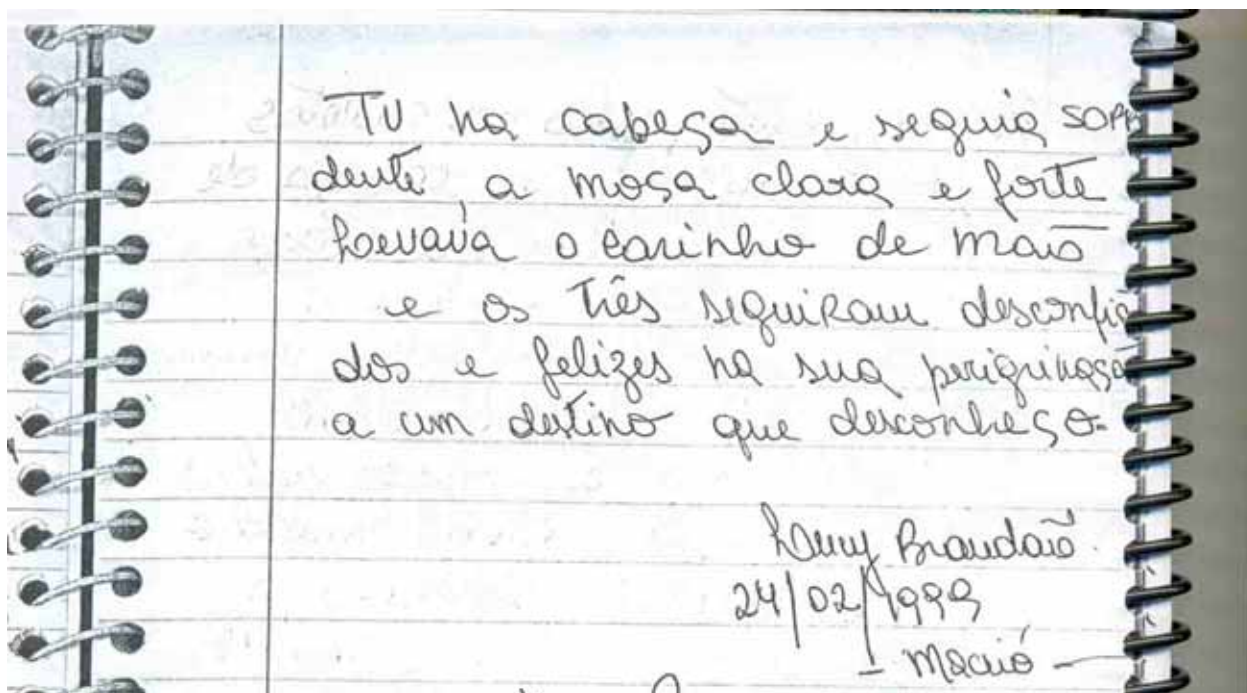 TV na cabeça e seguia sorri
dente, a moça clara e forte
Levava o carinho de mão
e os três seguiram desconfia
dos e felizes na sua periginaçã
a um destino que desconheço.
Brandão
24/02/1999
- Maceió -